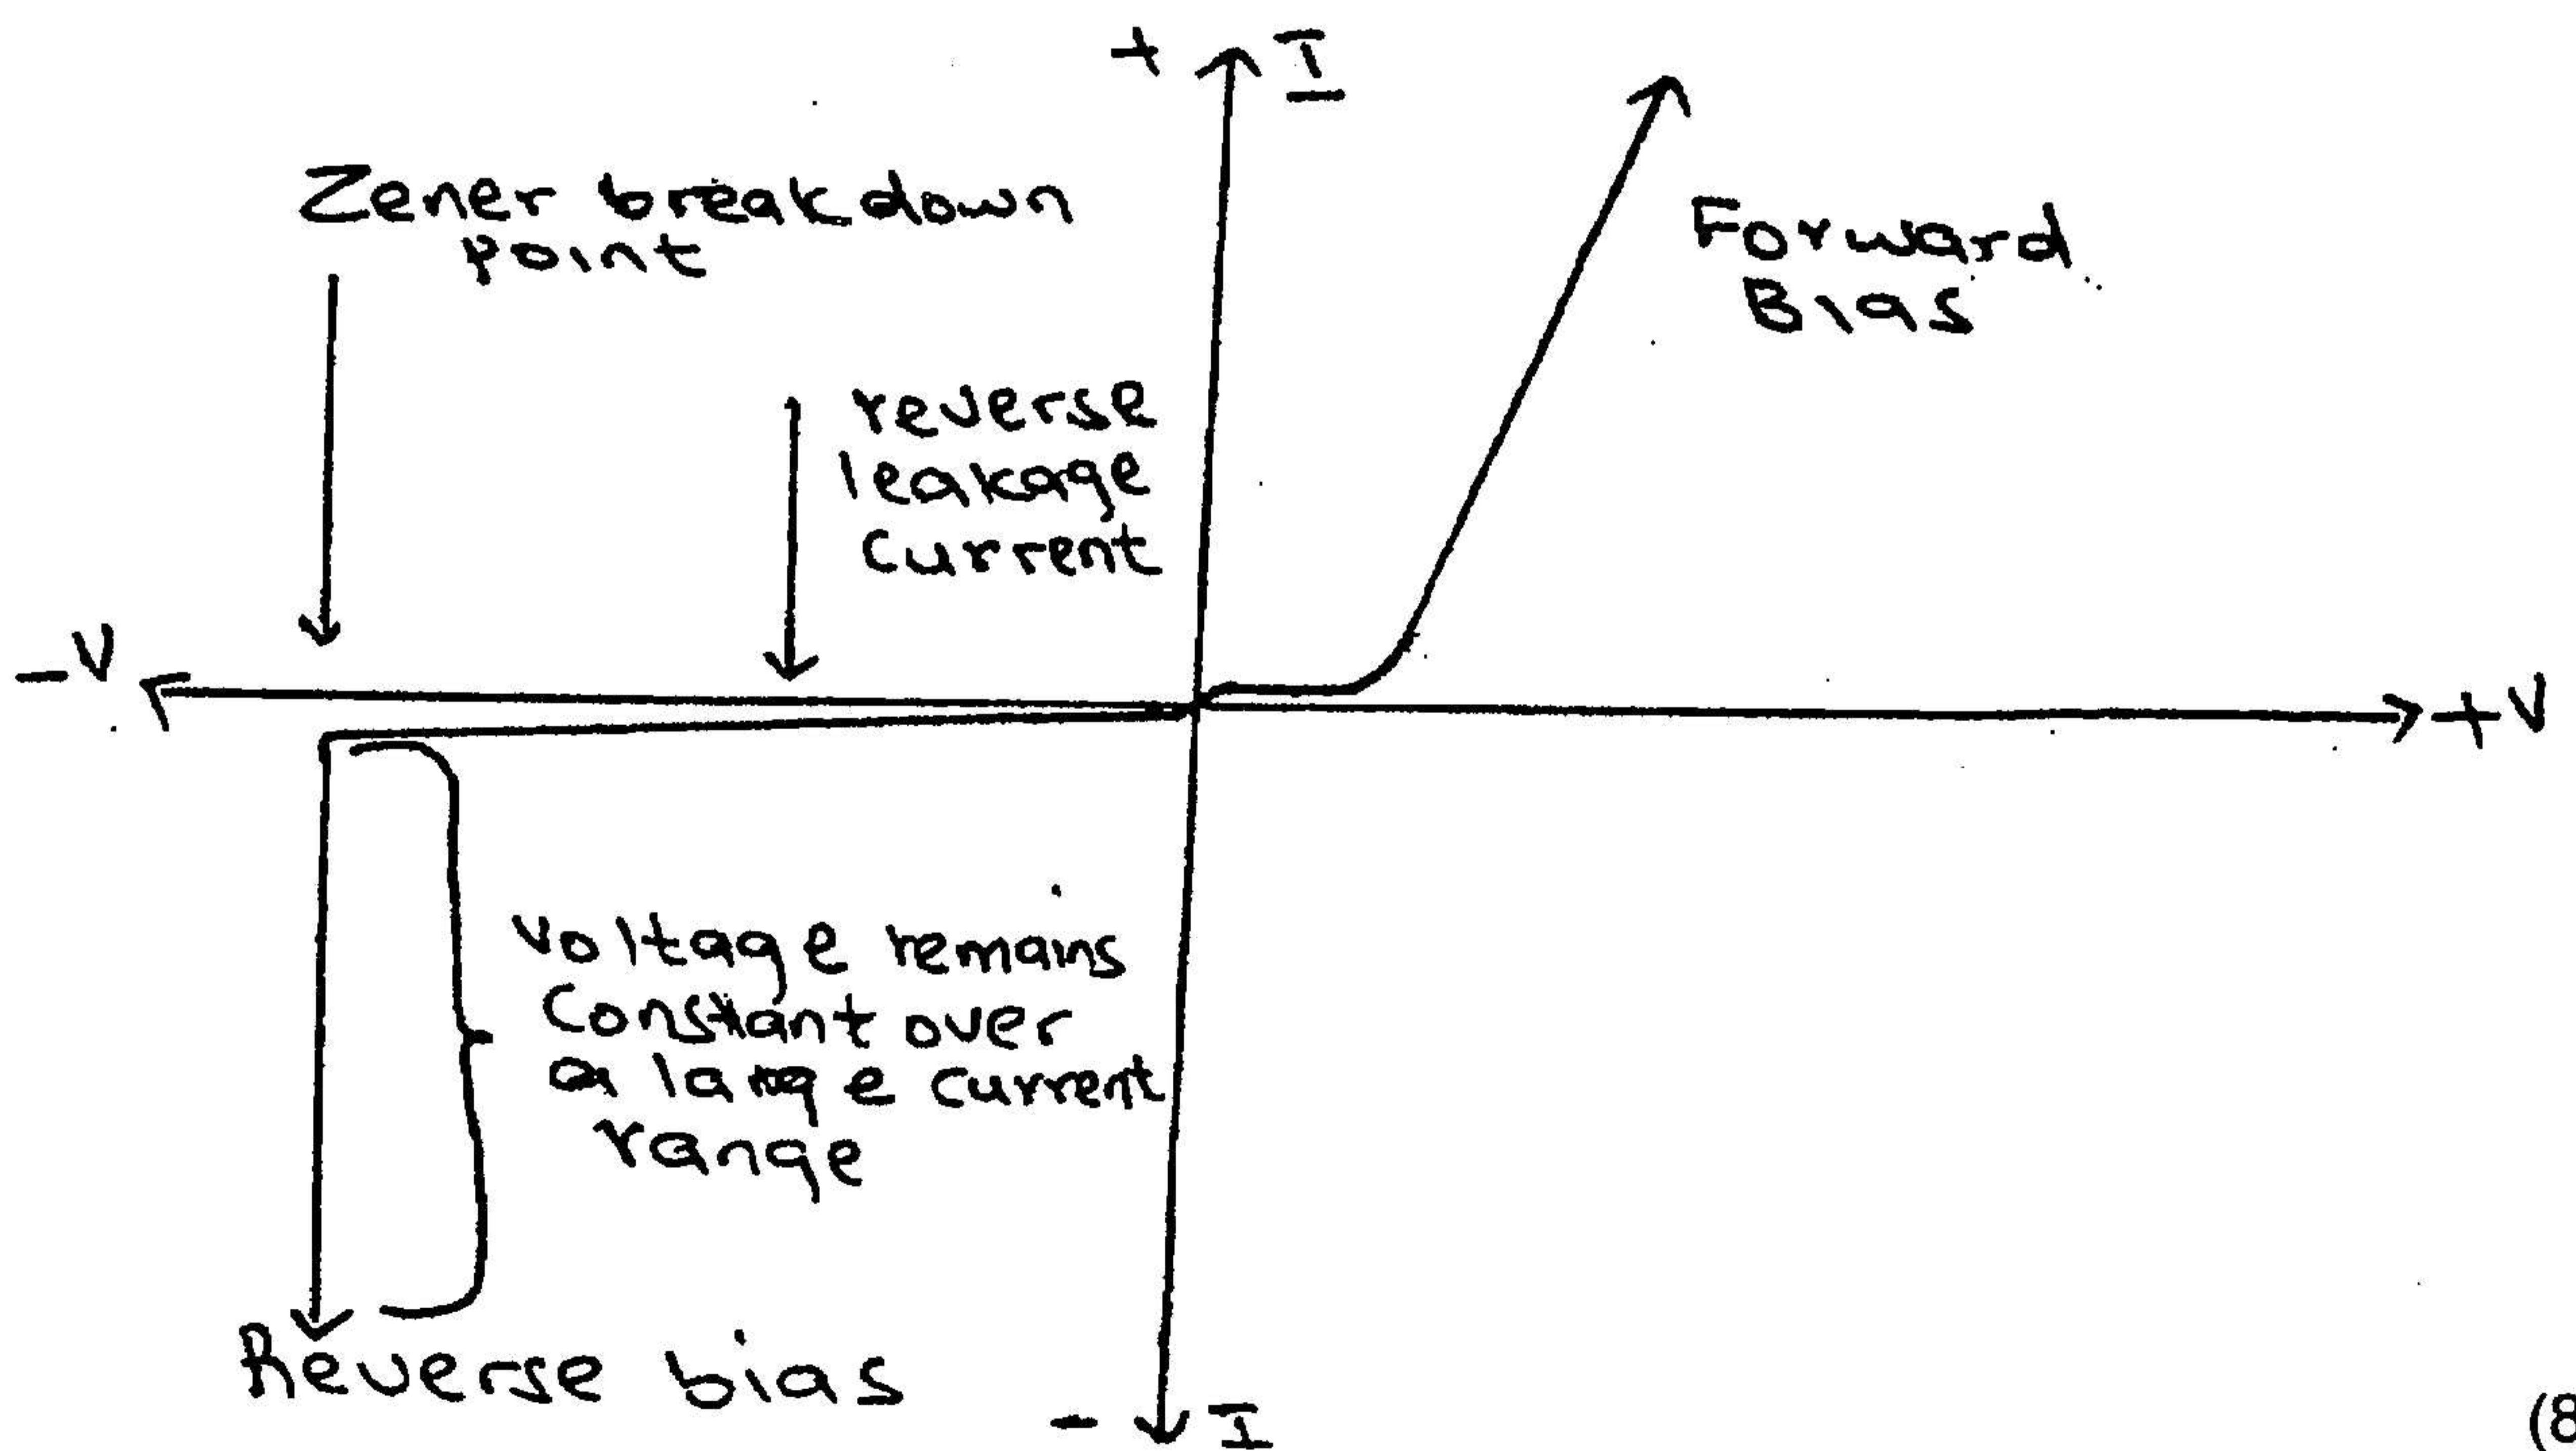 + I
Zener breakdown
point
Forward
Bias
reverse
leakage
current
-V
+V
Voltage remains
Constant over
a large current
range
Reverse bias
- I
(8